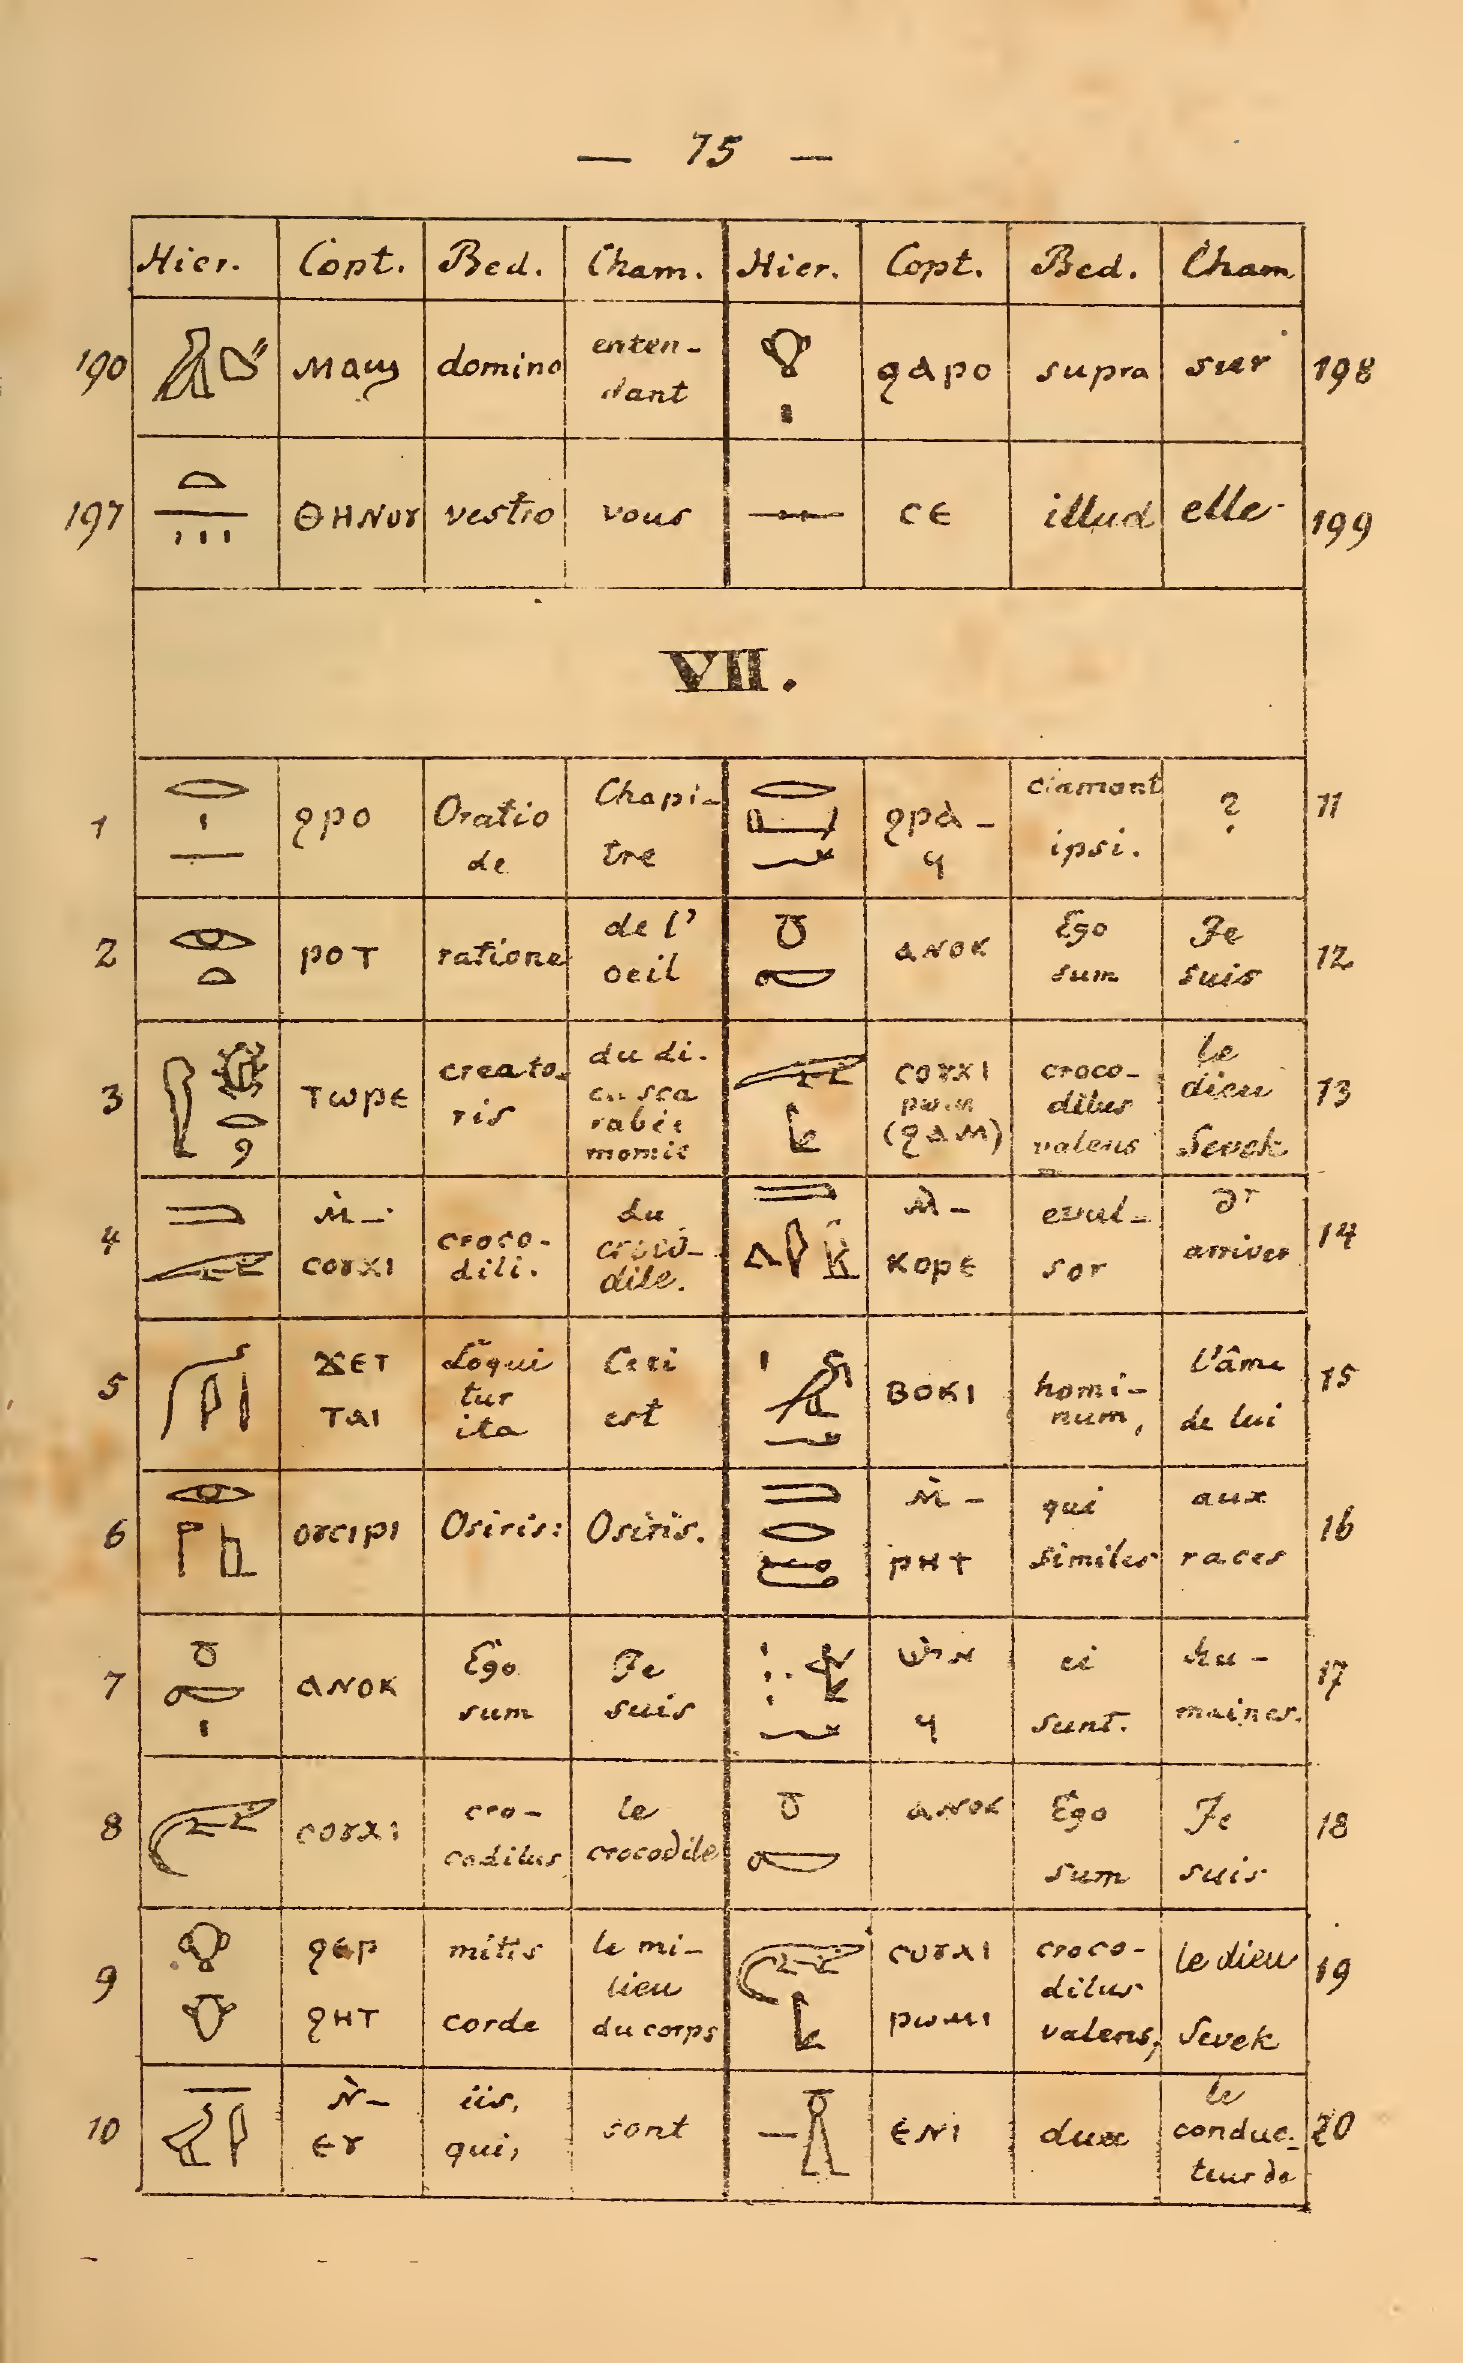 — 75 —
Hier. Copt. Bed. Cham. Hier. Copt. Bed. Cham
190 ⲙⲁϣ domino enten-dant ϩⲁⲣⲟ supra sur 198
197 ⲑⲏⲛⲟⲩ vestro vous ⲥⲉ illud elle 199
VII.
1 ϩⲣⲟ Oratio de Chapi-tre ϩⲣⲁ-ϥ clamant ipsi. ? 11
2 ⲣⲟⲧ ratione de l' oeil ⲁⲛⲟⲕ Ego sum Je suis 12
3 ⲧⲱⲣⲉ creato-ris du di-eu sca rabée momie ⲥⲟⲩⲭⲓ (ϩⲁⲙ) croco-dilus valens le dieu Sevek 13
4 ⲙ̀- ⲥⲟⲩⲭⲓ croco-dili. du croco-dile. ⲙ̀- ⲕⲟⲣⲉ evul-sor d' arriver 14
5 ϫⲉⲧ ⲧⲁⲓ Loqui tur ita Ceci est ⲃⲟⲕⲓ homi-num, l'âme de lui 15
6 ⲟⲩⲥⲓⲣⲓ Osiris: Osiris. ⲙ̀- ⲣⲏϯ qui similes aux races 16
7 ⲁⲛⲟⲕ Ego sum Je suis ϥ ei sunt. hu-maines. 17
8 ⲥⲟⲩⲭⲓ cro-codilus le crocodile ⲁⲛⲟⲕ Ego sum Je suis 18
9 ϩⲉⲣ ϩⲏⲧ mitis corde le mi-lieu du corps ⲥⲟⲩⲭⲓ ⲣⲱⲙⲓ croco-dilus valens, le dieu Sevek 19
10 ⲛ̀- ⲉⲩ iis, qui, sont ⲉⲛⲓ dux le conduc-teur de 20